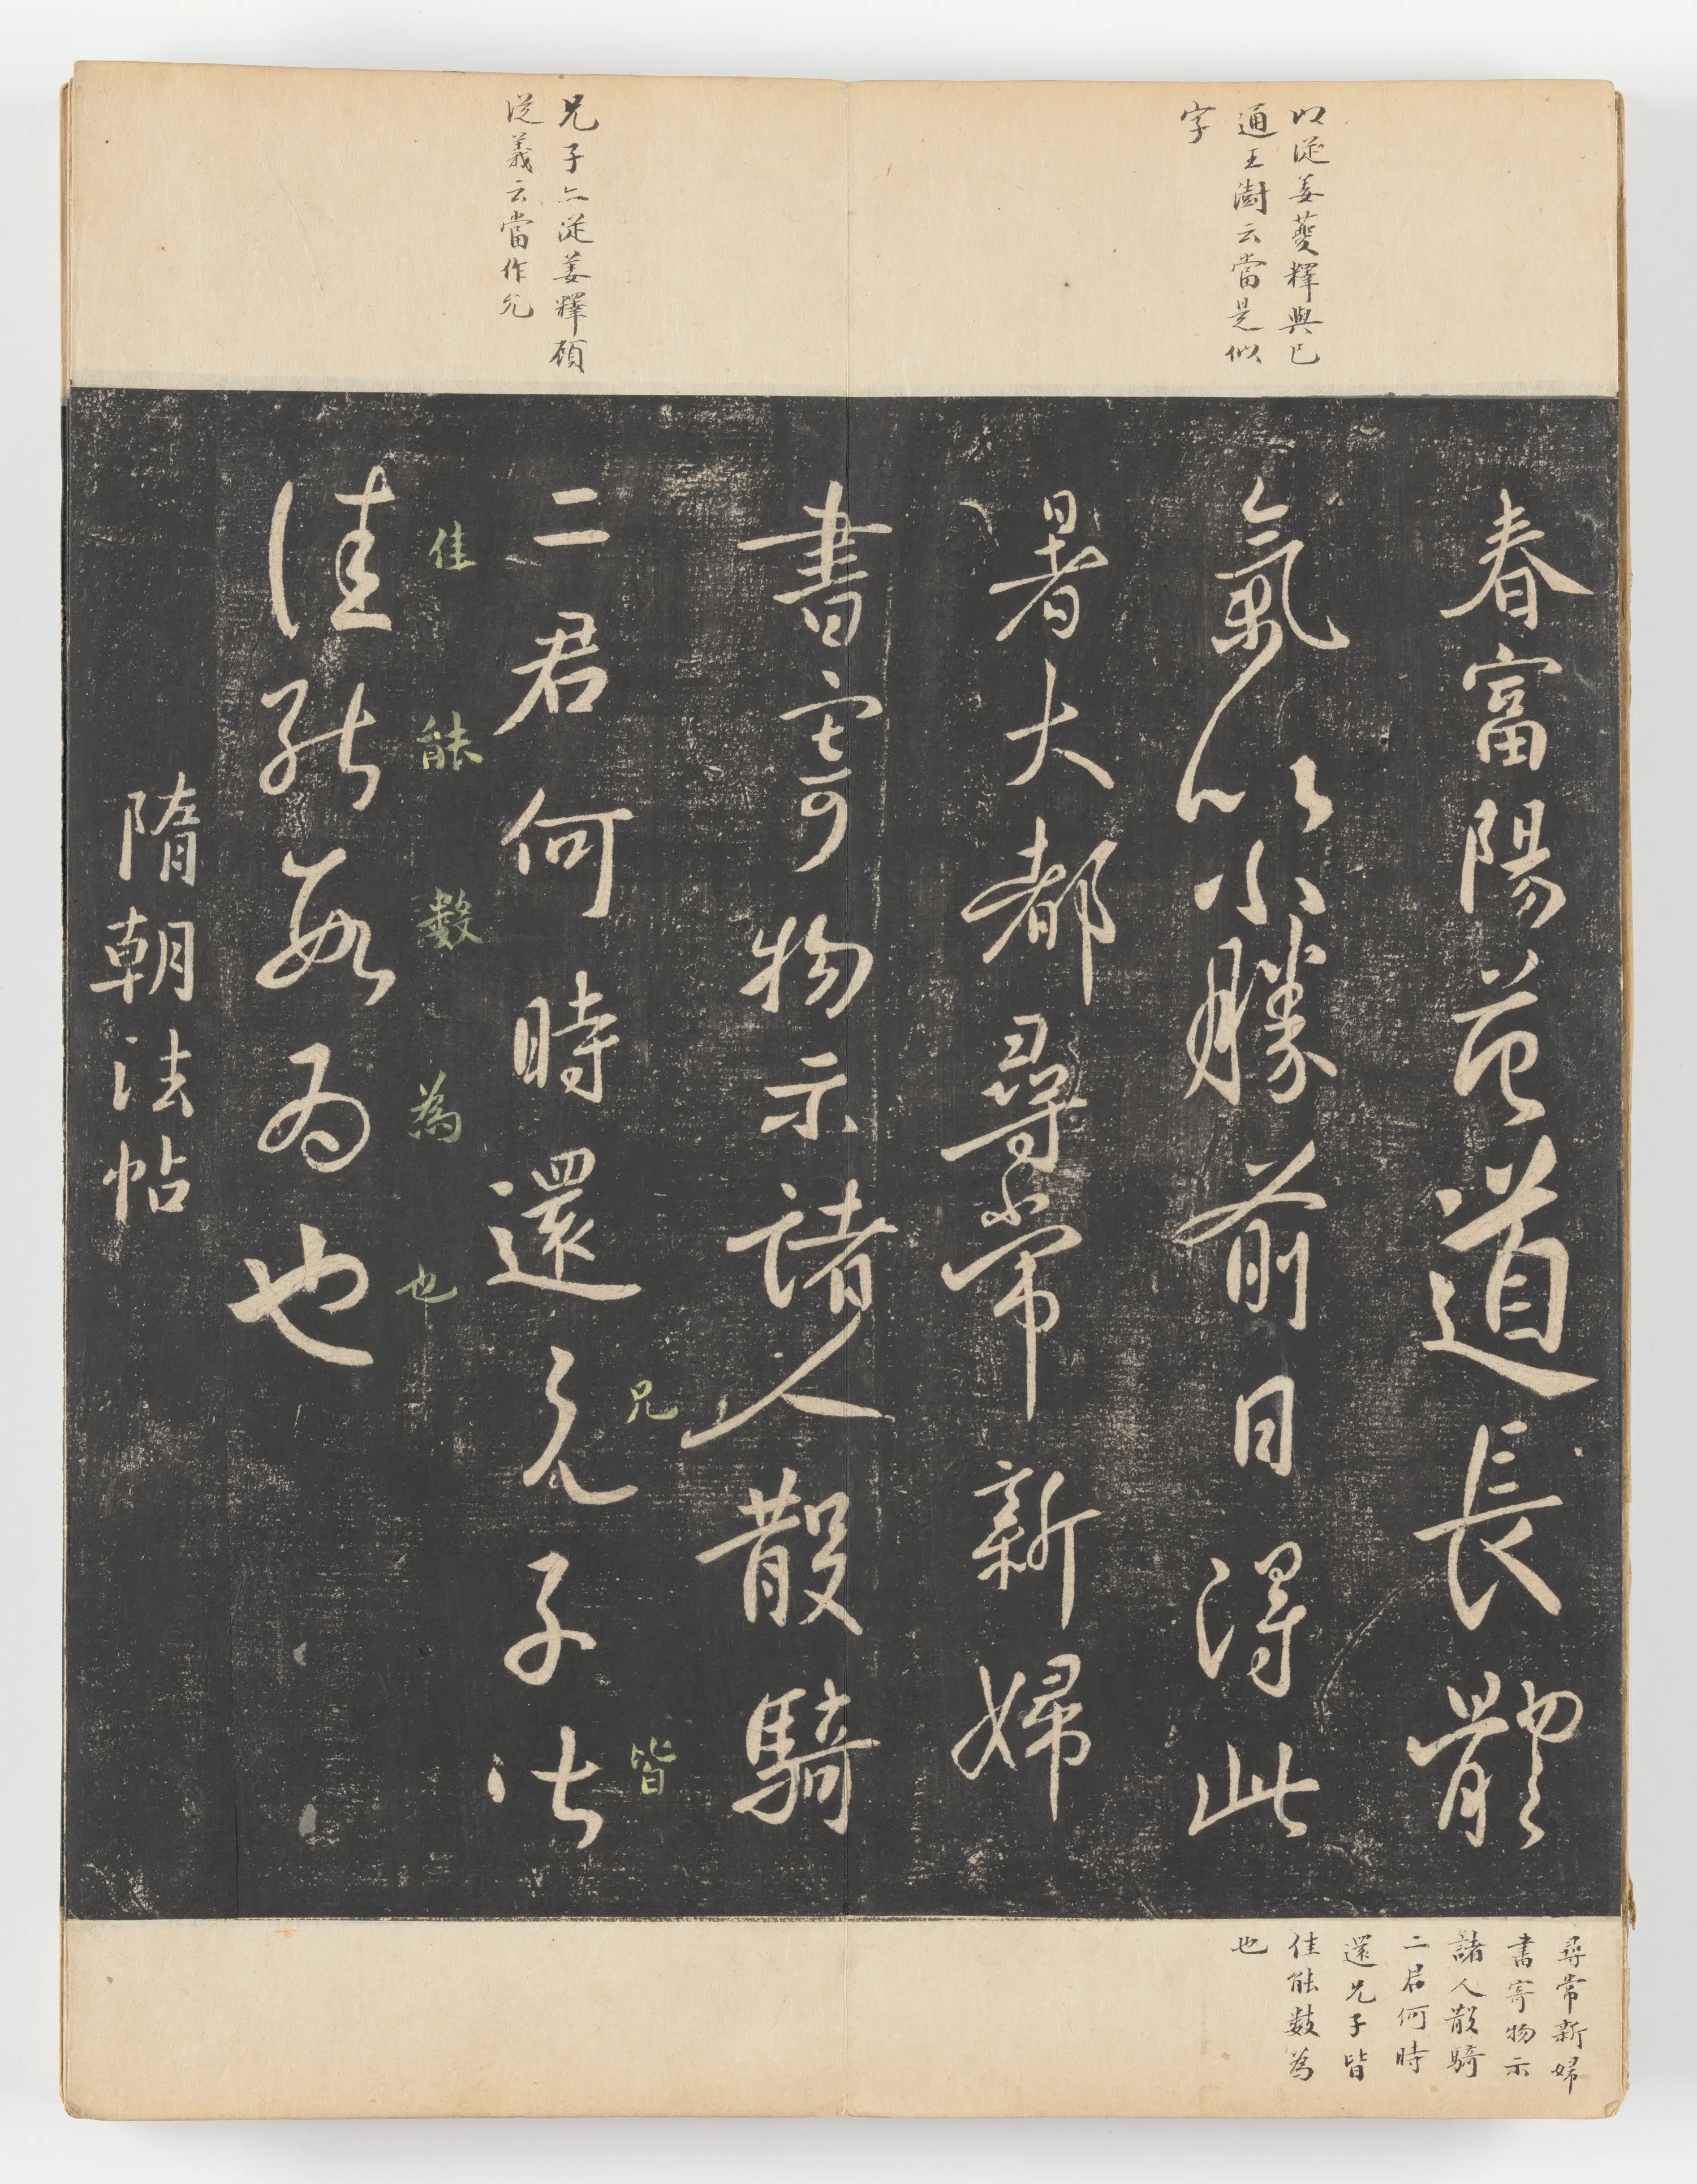 以從姜夔釋與已
通王澍云當是似
字
兄子亦從姜釋顧
從義云當作允
春富陽範道長體
氣以小勝前日得此
暑大都尋常新婦
書寄物示諸人散騎
二君何時還兄子皆
兄
皆
佳能數為也
佳能數為也
隋朝法帖
尋常新婦
書寄物示
諸人散騎
二君何時
還兄子皆
佳能數為
也